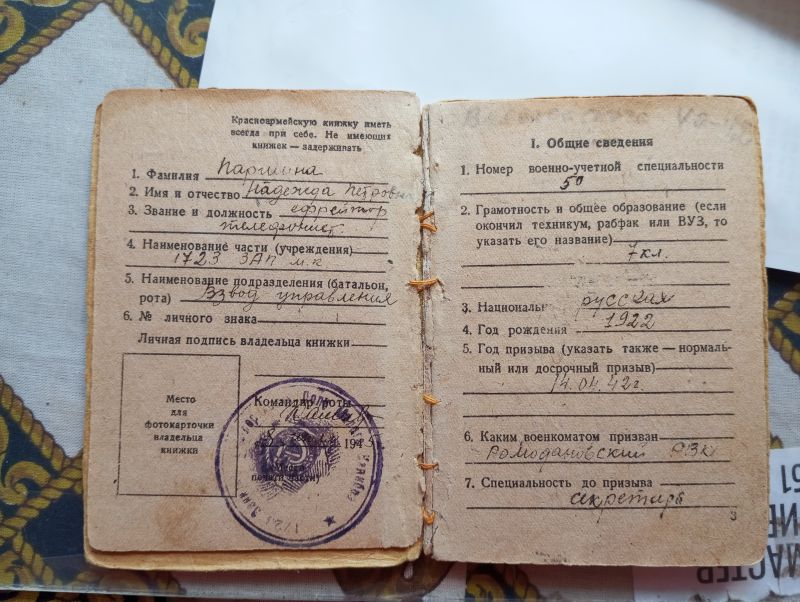 Красноармейскую книжку иметь
всегда при себе. Не имеющих
книжек — задерживать
1. Фамилия Паршина
2. Имя и отчество Надежда Петровна
3. Звание и должность ефрейтор
телефонист
4. Наименование части (учреждения)
1723 ЗАП м.к
5. Наименование подразделения (батальон,
рота) Взвод управления
6. № личного знака
Личная подпись владельца книжки
Место
для
фотокарточки
владельца
книжки
Командир роты
194
печати части)
I. Общие сведения
1. Номер военно-учетной специальности
50
2. Грамотность и общее образование (если
окончил техникум, рабфак или ВУЗ, то
указать его название)
7кл.
3. Националь русская
4. Год рождения 1922
5. Год призыва (указать также — нормаль-
ный или досрочный призыв)
14.04.42г.
6. Каким военкоматом призван
Ромодановский РВК
7. Специальность до призыва
секретарь
3
МАСТЕР
51